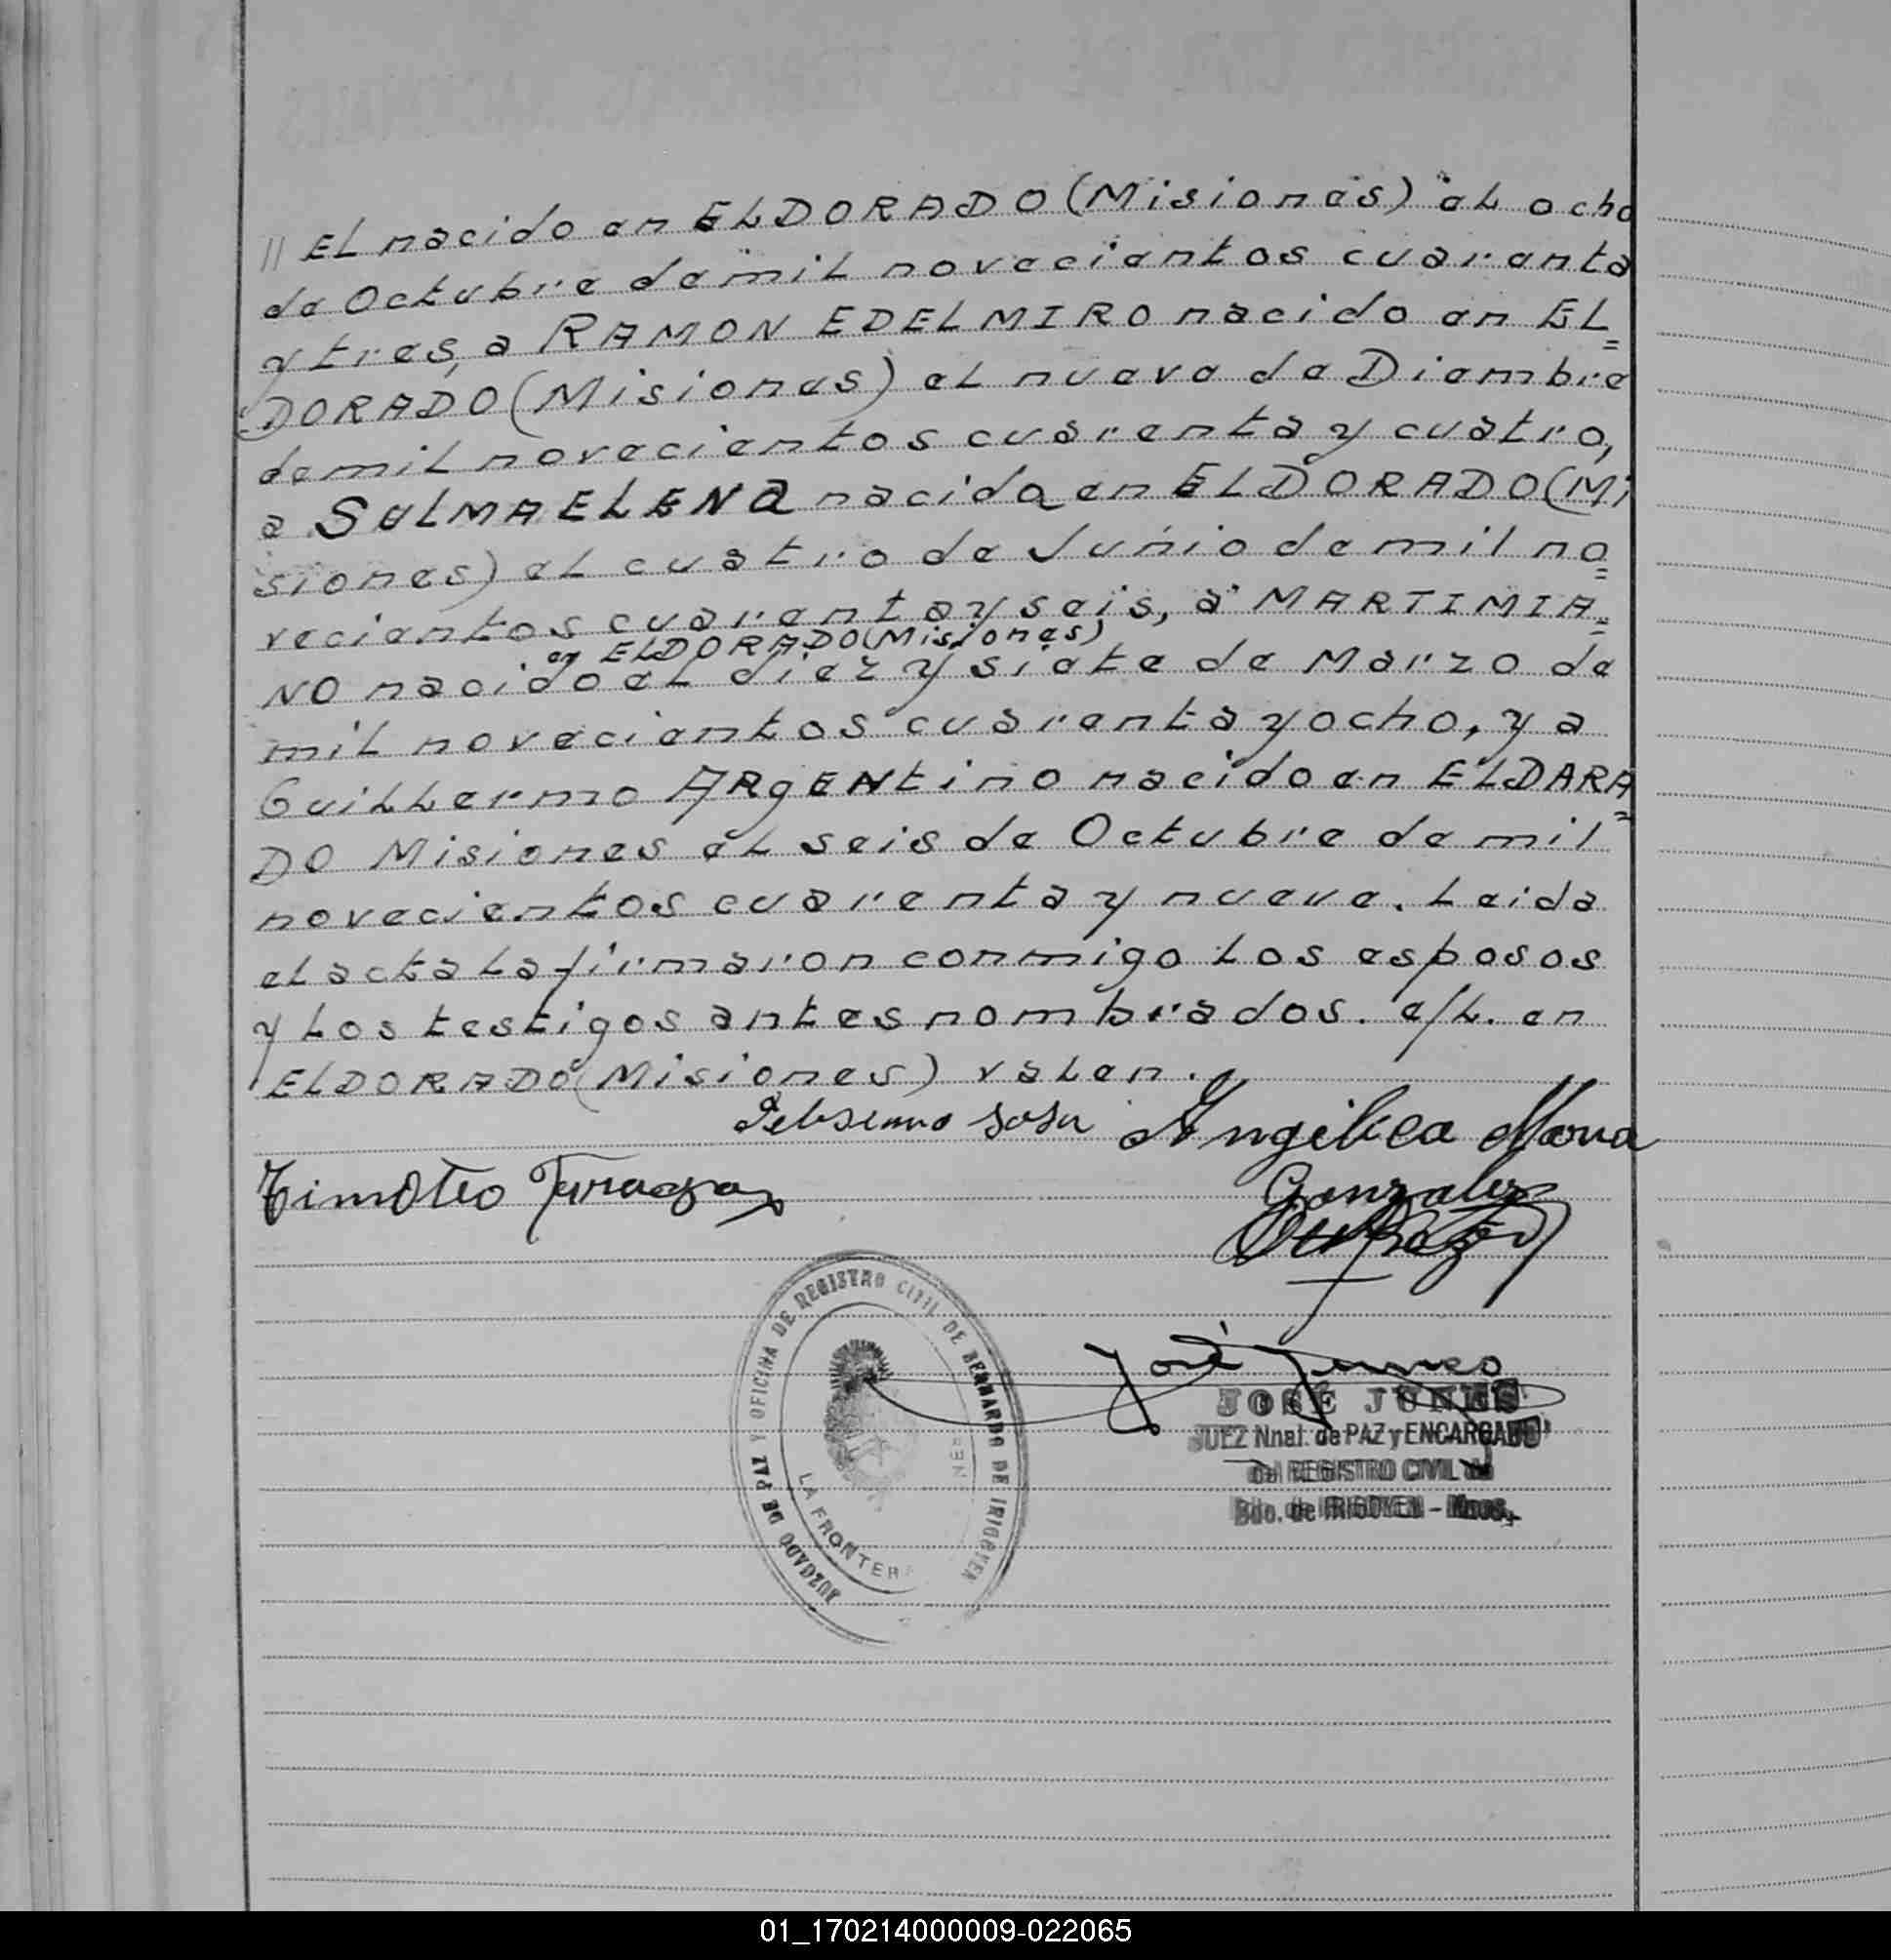 // EL nacido en ELDORADO (Misiones) el ocho
de Octubre de mil novecientos cuarenta
y tres, a RAMON EDELMIRO nacido en EL=
DORADO (Misiones) el nueve de Diembre
de mil novecientos cuarenta y cuatro,
a SULMA ELENA nacida en ELDORADO (Mi
siones) el cuatro de Junio de mil no=
vecientos cuarenta y seis, a MARTIMIA=
en ELDORADO (Misiones)
NO nacido el diez y siete de Marzo de
mil novecientos cuarenta y ocho, y a
Guillermo ARgENtino nacido en ELDARA=
DO Misiones el seis de Octubre de mil
novecientos cuarenta y nueve. Leida
el acta la firmaron conmigo los esposos
y los testigos antes nombrados. e/l. en
ELDORADO (Misiones) valen.
Sosa Angélica Mona
Timoteo
Gonzalez
José Junes
JOSE JUNES
JUEZ Nnal. de PAZ y ENCARGADO
del REGISTRO CIVIL de
Bdo. de IRIGOYEN - Mnes.
JUZGADO DE PAZ Y OFICINA DE REGISTRO CIVIL DE BERNARDO DE IRIGOYEN
LA FRONTERA
01_170214000009-022065